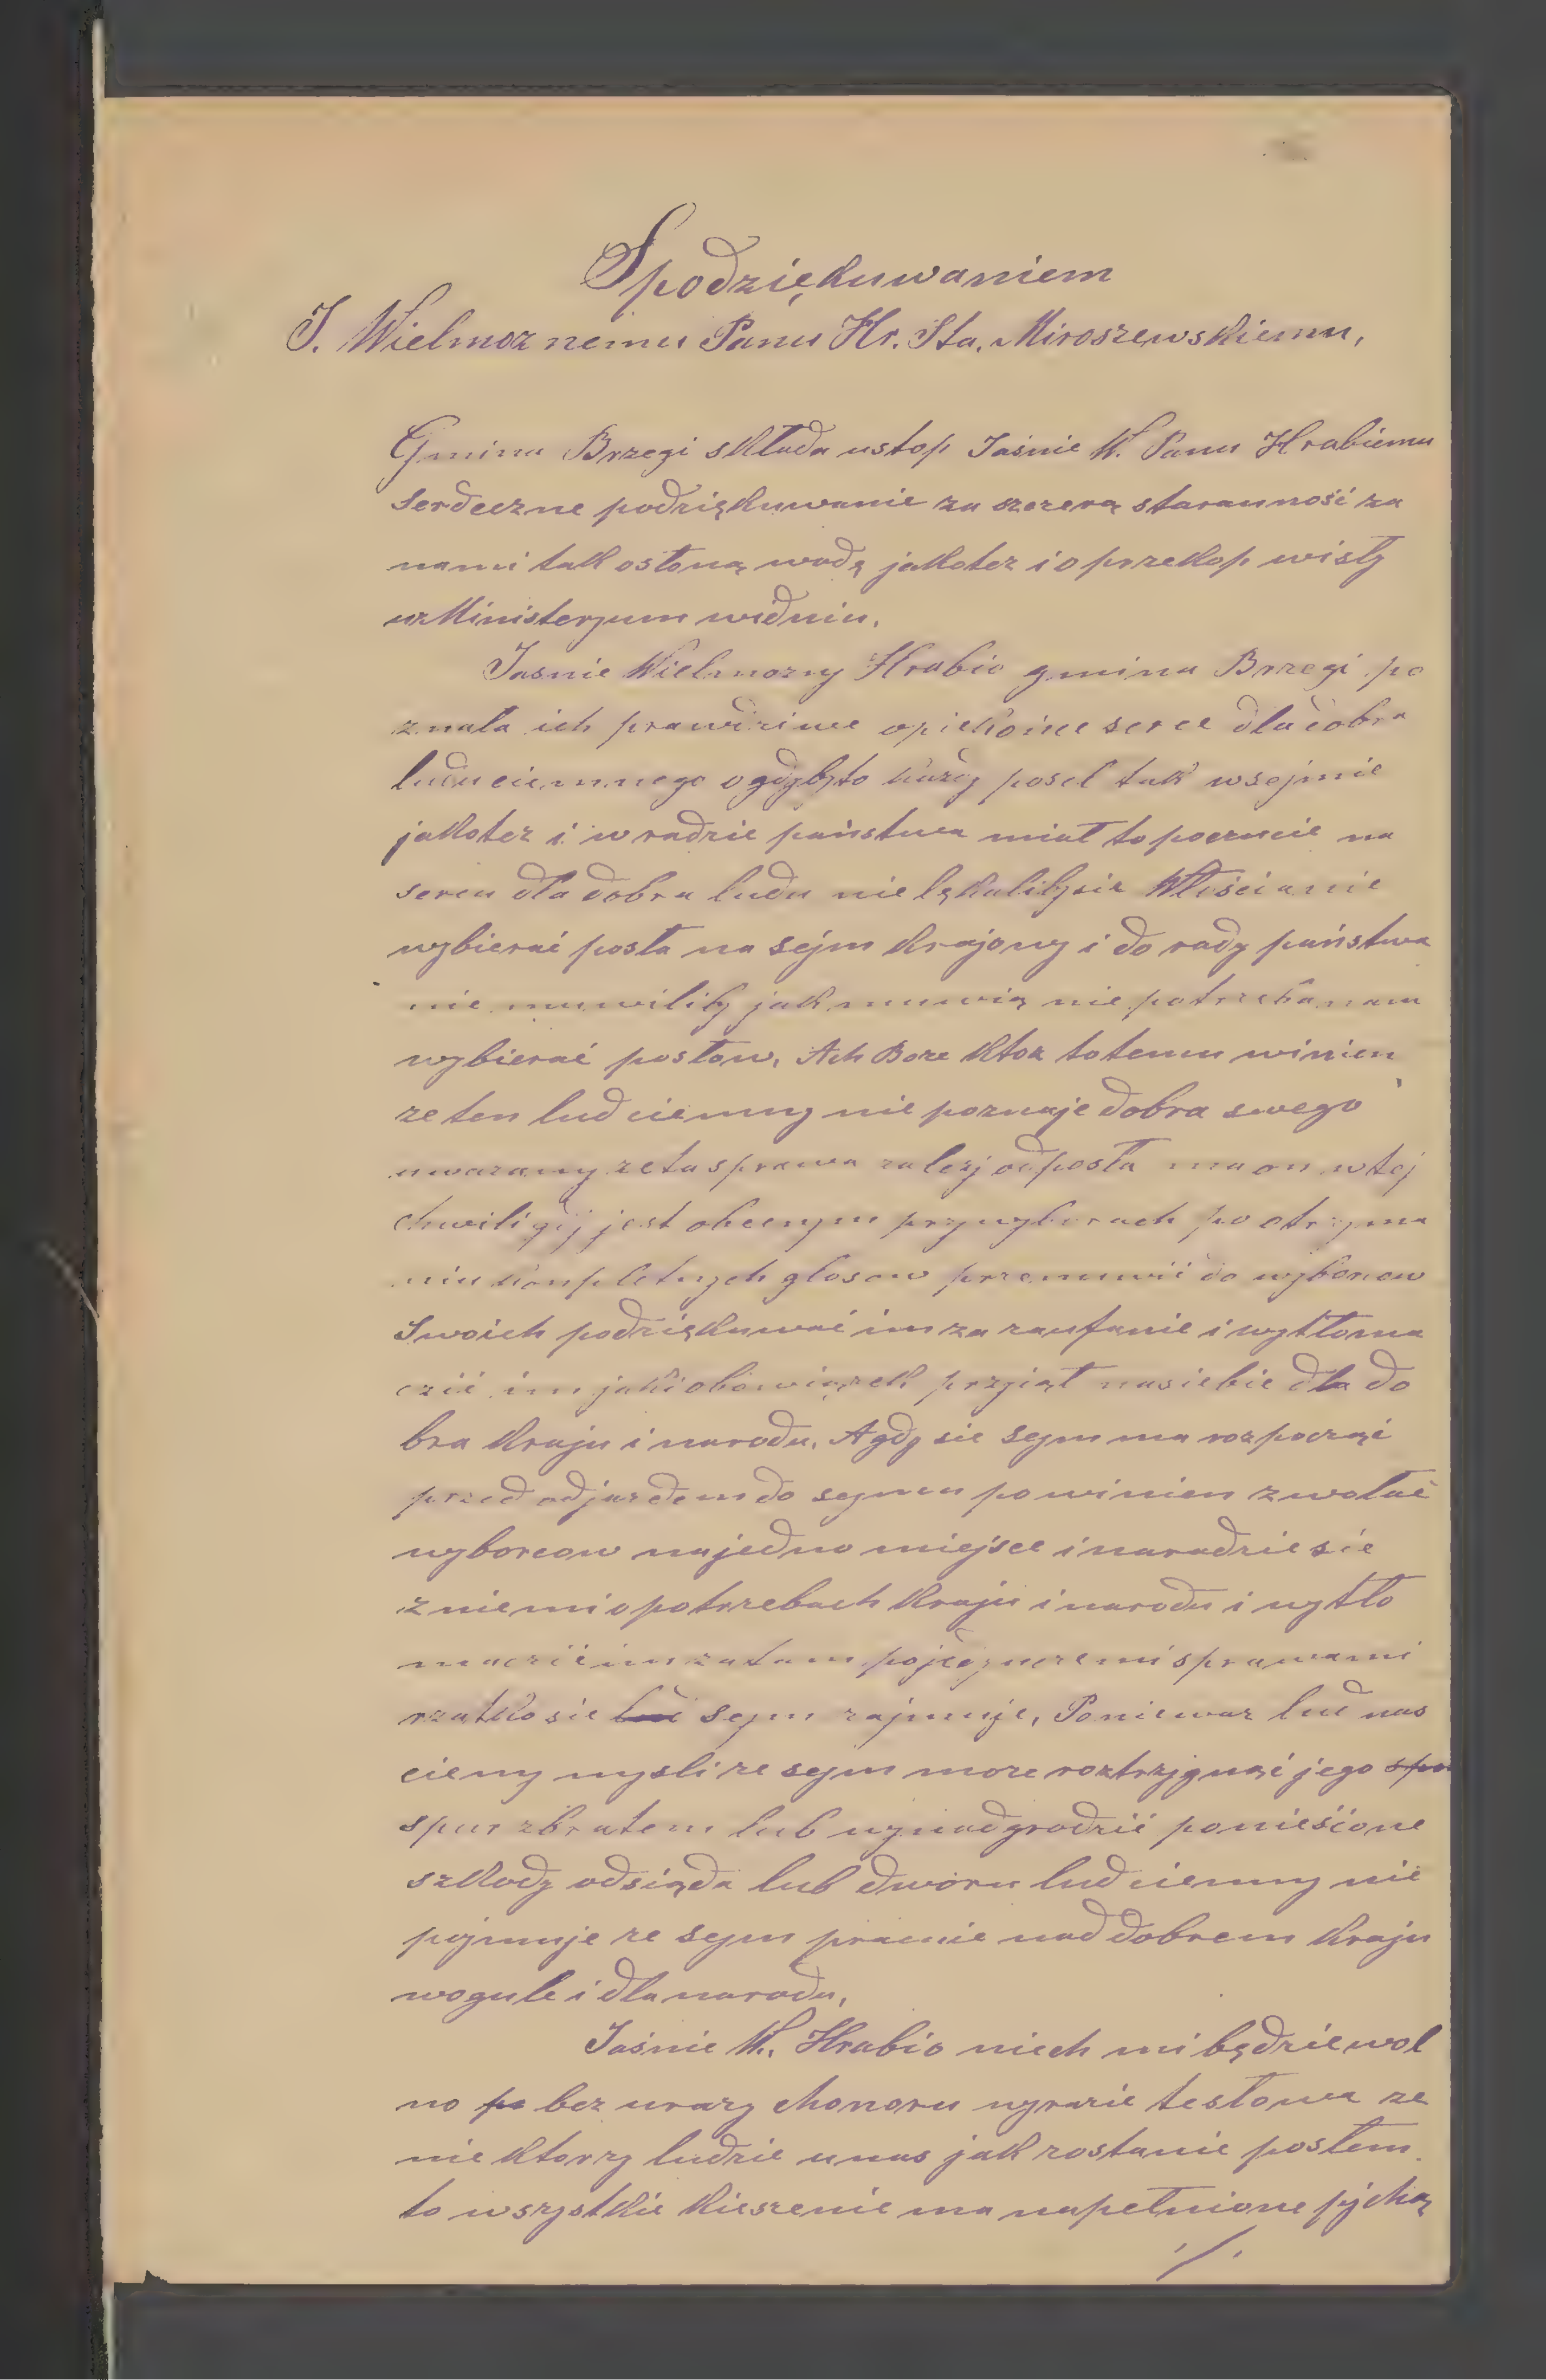 Spodziękuwaniem
J. Wielmoznemu Panu Hr. Sta. Miroszewskiemu,
Gmina Brzegi składa ustop Jaśnie W. Panu Hrabiemu
Serdeczne podziękuwanie za szczerą staranność za
nami tak osłoną wodę jakotez i o przekop wisły
w Ministeryum widniu.
Jasnie Wielmozny Hrabio gmina Brzegi po
znała ich prawdziwe opiekóńcze serce dla dobra
ludu ciemnego ogdybyto każdy posel tak wsejmie
jakotez i w radzie państwa miał topoczucie na
sercu dla dobra ludu nie lękalibysie Włościanie
wybierać posła na sejm krajowy i do rady państwa
nie muwiliby jak muwią nie potrzeba nam
wybierać posłow, Ach Boze ktoz totemu winien
ze ten lud ciemny nie poznaje dobra swego
uwazamy zeta sprawa zalezy od posła ma on w tej
chwili gdy jest obecnym przywyborach po otrzyma
niu kompletnych glosow przemuwić do wyborcow
Swoich podziękuwać im za zaufanie i wytłoma
czić im jaki obowiązek przyiął nasiebie dla do
bra kraju i narodu, A gdy sie sejm ma rozpocząć
przed odjazdem do sejmu powinien zwołać
wyborcow najedno miejsce inaradzie sie
zniemi o potrzebach kraju i narodu i wytło
maczić im zatam pojedynczemi sprawami
rzatko sie sejm zajmuje, Poniewaz lud nas
ciemy mysli ze sejm moze roztrzygnąć jego spor
spur zbratem lub wynadgrodzić ponieśione
szkody odsiąda lub dworu lud ciemny nie
pojmuje ze sejm pracuie nad dobrem kraju
wogule i dla narodu,
Jaśnie W. Hrabio niech mi będzie wol
no po bez urazy chonoru wyrazie te słowa ze
nie ktorzy ludzie unas jak zostanie posłem
to wszystkie kieszenie ma napełnione pychą
./.